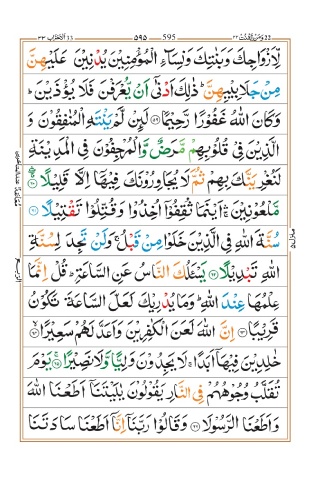 ٢٢ وَمَنْ يَّقْنُتْ ٥٩٥ 595 الاحزاب ٣٣
لِّاَزْوَاجِكَ وَبَنٰتِكَ وَنِسَآءِ الْمُؤْمِنِيْنَ يُدْنِيْنَ عَلَيْهِنَّ
مِنْ جَلَابِيْبِهِنَّ ؕ ذٰلِكَ اَدْنٰۤى اَنْ يُّعْرَفْنَ فَلَا يُؤْذَيْنَ ؕ
وَكَانَ اللّٰهُ غَفُوْرًا رَّحِيْمًا ﴿۵۹﴾ لَىِٕنْ لَّمْ يَنْتَهِ الْمُنٰفِقُوْنَ وَ
الَّذِيْنَ فِيْ قُلُوْبِهِمْ مَّرَضٌ وَّالْمُرْجِفُوْنَ فِي الْمَدِيْنَةِ
لَنُغْرِيَنَّكَ بِهِمْ ثُمَّ لَا يُجَاوِرُوْنَكَ فِيْهَاۤ اِلَّا قَلِيْلًا ﴿۶۰﴾
مَّلْعُوْنِيْنَ ۛۚ اَيْنَمَا ثُقِفُوْۤا اُخِذُوْا وَقُتِّلُوْا تَقْتِيْلًا ﴿۶۱﴾
سُنَّةَ اللّٰهِ فِي الَّذِيْنَ خَلَوْا مِنْ قَبْلُ ۚ وَلَنْ تَجِدَ لِسُنَّةِ
اللّٰهِ تَبْدِيْلًا ﴿۶۲﴾ يَسْـَٔلُكَ النَّاسُ عَنِ السَّاعَةِ ؕ قُلْ اِنَّمَا
عِلْمُهَا عِنْدَ اللّٰهِ ؕ وَمَا يُدْرِيْكَ لَعَلَّ السَّاعَةَ تَكُوْنُ
قَرِيْبًا ﴿۶۳﴾ اِنَّ اللّٰهَ لَعَنَ الْكٰفِرِيْنَ وَاَعَدَّ لَهُمْ سَعِيْرًا ﴿۶۴﴾
خٰلِدِيْنَ فِيْهَاۤ اَبَدًا ۚ لَا يَجِدُوْنَ وَلِيًّا وَّلَا نَصِيْرًا ﴿۶۵﴾ يَوْمَ
تُقَلَّبُ وُجُوْهُهُمْ فِي النَّارِ يَقُوْلُوْنَ يٰلَيْتَنَاۤ اَطَعْنَا اللّٰهَ
وَاَطَعْنَا الرَّسُوْلَا ﴿۶۶﴾ وَقَالُوْا رَبَّنَاۤ اِنَّاۤ اَطَعْنَا سَادَتَنَا